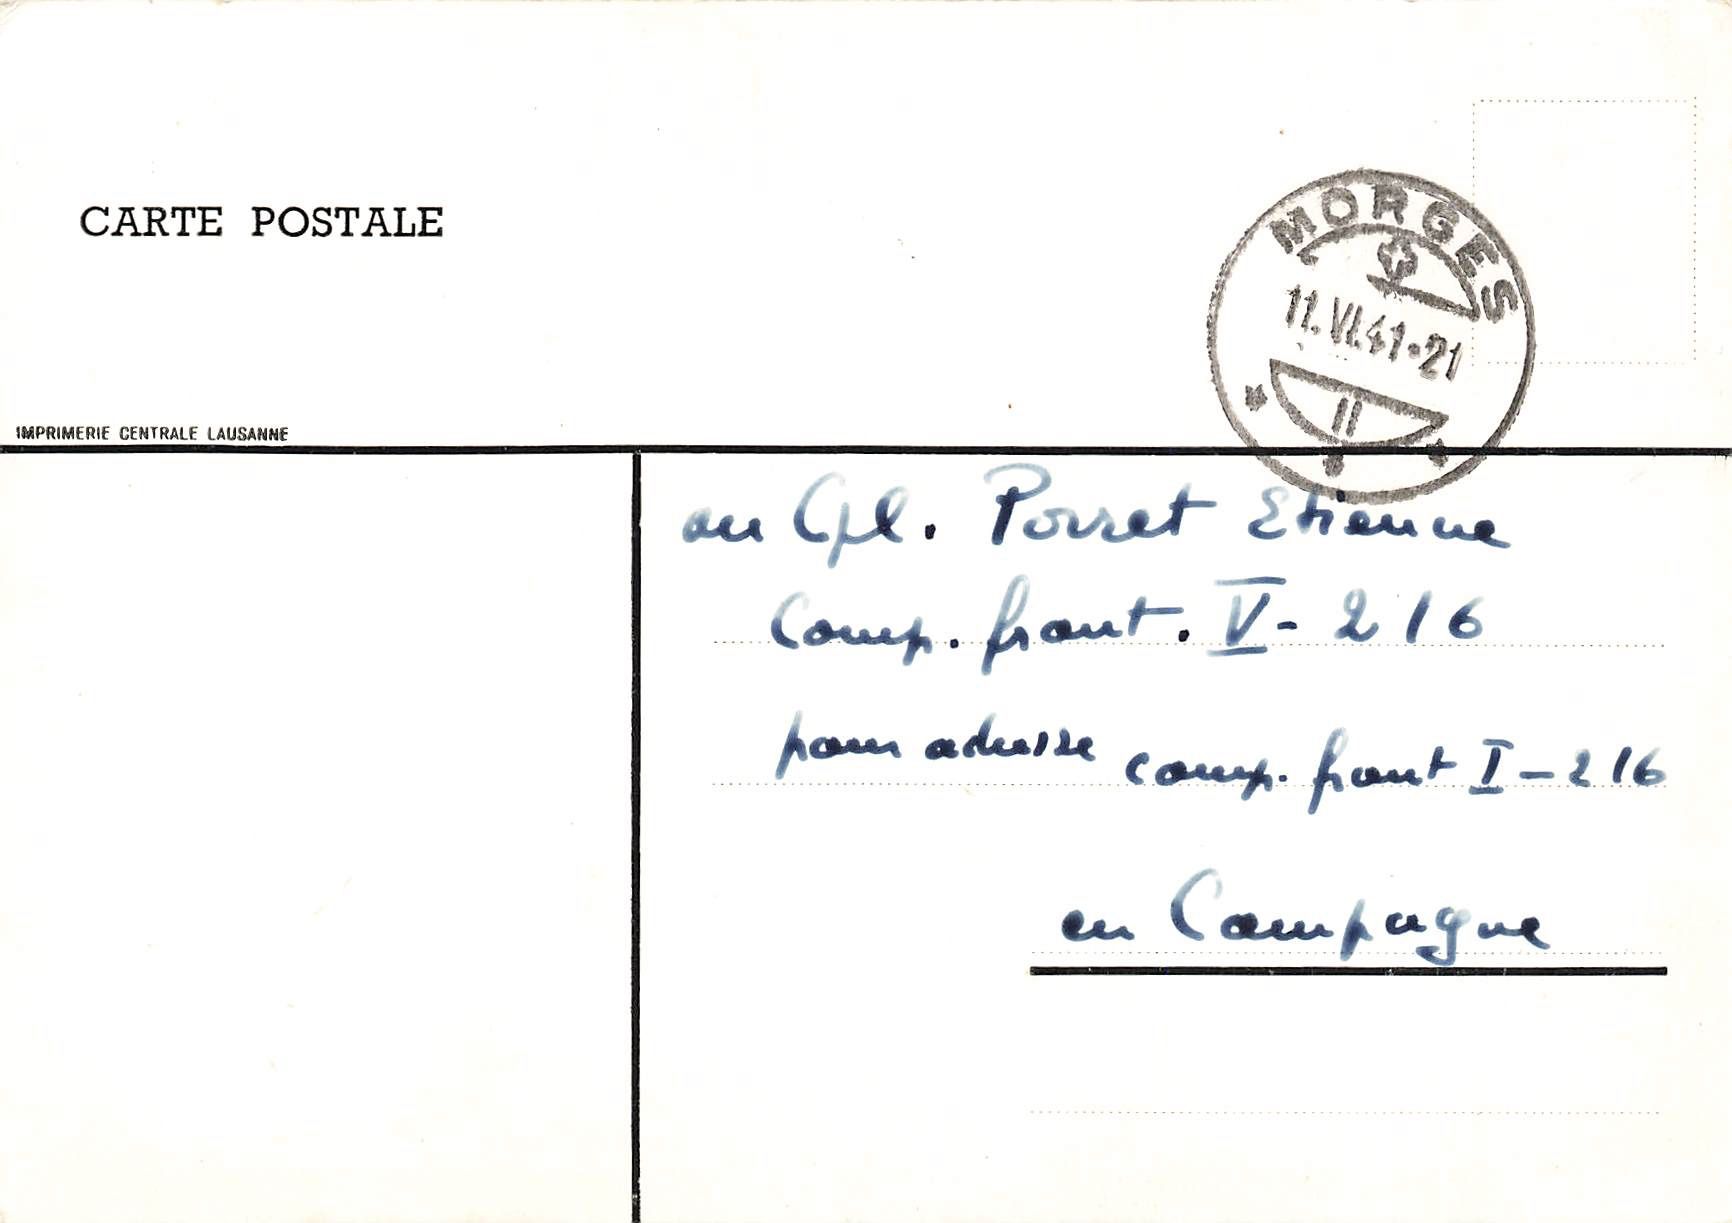 CARTE POSTALE
MORGES
11.VI.41-21
II
IMPRIMERIE CENTRALE LAUSANNE
au Cpl. Porret Etienne
Comp. front. V - 216
pour adresse comp. front I - 216
en Campagne